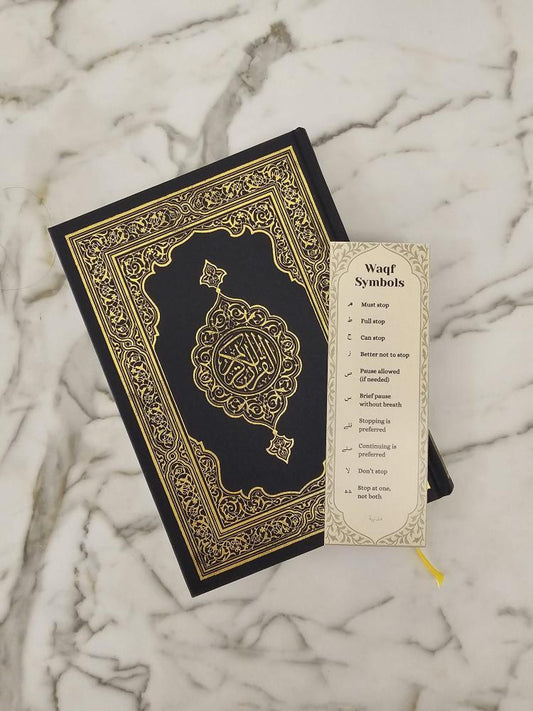 القرآن الكريم
Waqf
Symbols
مـ Must stop
ط Full stop
ج Can stop
ز Better not to stop
ص Pause allowed
(if needed)
س Brief pause
without breath
قلى Stopping is
preferred
صلى Continuing is
preferred
لا Don't stop
Stop at one,
not both